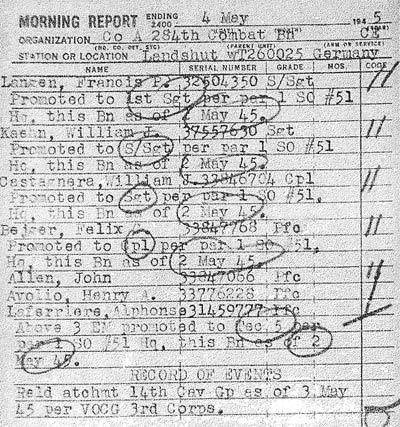 MORNING REPORT ENDING 2400 4 May 1945
ORGANIZATION Co A 284th Combat Bn CE
(NO. CO., DET., ETC) (PARENT UNIT) (ARM OR SERVICE)
STATION OR LOCATION Landshut wT260025 Germany
NAME SERIAL NUMBER GRADE MOS. CODE
Langen, Francis P. 32504350 S/Sgt
Promoted to 1st Sgt per par 1 SO #51
Hq. this Bn as of 2 May 45.
Kaehn, William J. 37557630 Sgt
Promoted to S/Sgt per par 1 SO #51
Hq. this Bn as of 2 May 45.
Castagnara, William J. 33846704 Cpl
Promoted to Sgt per par 1 SO #51,
Hq. this Bn as of 2 May 45.
Bejger, Felix 33847768 Pfc
Promoted to Cpl per par 1 SO #51,
Hq. this Bn as of 2 May 45.
Allen, John 33847066 Pfc
Avolio, Henry A. 33776228 Pfc
Laferriere, Alphonse 31459777 Pfc
Above 3 EM promoted to Tec 5 per
par 1 SO #51 Hq, this Bn as of 2
May 45.
RECORD OF EVENTS
Reld atchmt 14th Cav Gp as of 3 May
45 per VOCG 3rd Corps.